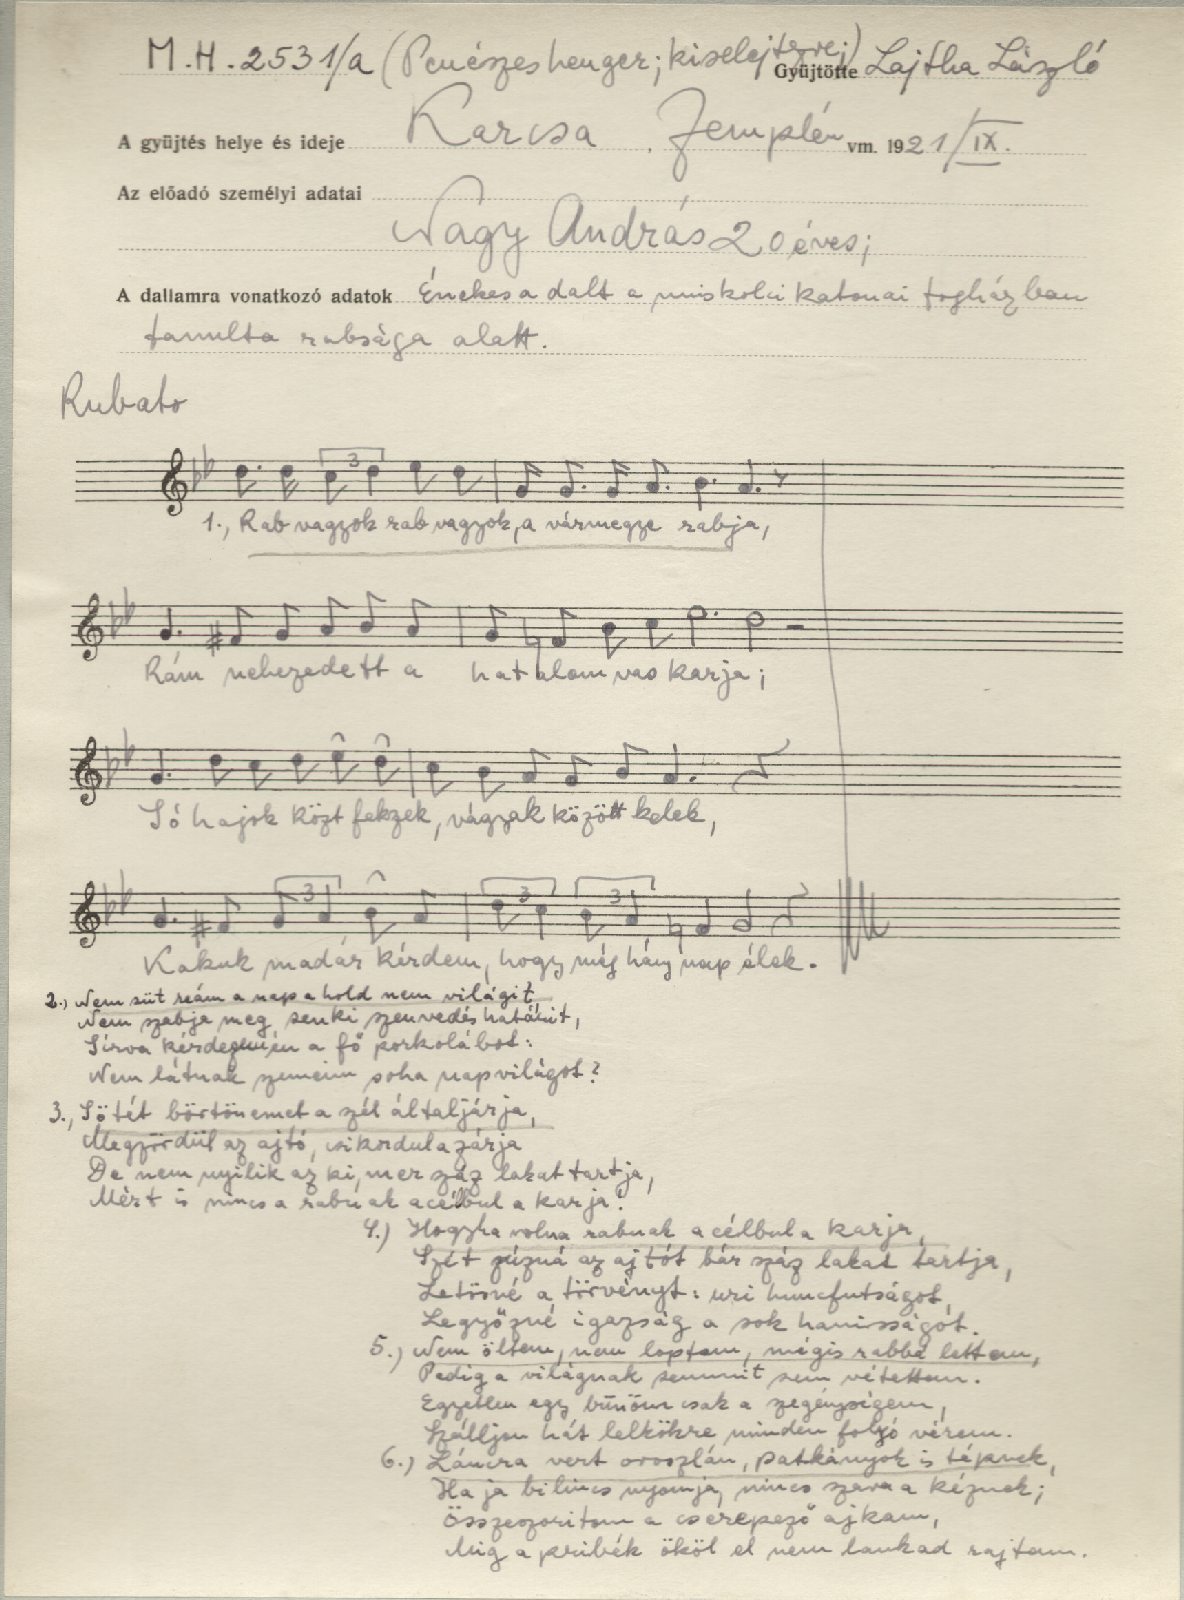 M.H. 2531/a (Penészes henger; kiselejtezve,)
Gyüjtötte Lajtha László
A gyüjtés helye és ideje Karcsa. Zemplén vm. 1921/IX.
Az előadó személyi adatai
Nagy András 20 éves;
A dallamra vonatkozó adatok Énekes a dalt a miskolci katonai fogházban
tanulta rabsága alatt.
Rubato
3
1., Rab vagyok rab vagyok, a vármegye rabja,
Rám nehezedett a hatalom vas karja;
Sóhajok közt fekzek, vágyak között kelek,
3 3 3
Kakuk madár kérdem, hogy még hány nap élek.
2., Nem süt reám a nap a hold nem világit,
Nem szabja meg senki szenvedés határit,
Sirva kérdezem én a fő porkolábot:
Nem látnak szemeim soha napvilágot?
3., Sötét börtönemet a szél általjárja,
Megzördül az ajtó, csikordul a zárja
De nem nyilik az ki, mer száz lakat tartja,
Mért is nincs a rabnak acélbul a karja!
4.) Hogyha volna rabnak acélbul a karja,
Szét zúzná az ajtót bár száz lakat tartja,
Letörné a törvényt: uri huncfutságot,
Legyőzné igazság a sok hamisságót.
5.) Nem öltem, nem loptam, mégis rabbá lettem,
Pedig a világnak semmit sem vétettem.
Egyetlen egy bűnöm csak a szegénységem,
Szálljon hát lelkökre minden folyó vérem.
6.) Láncra vert oroszlán, patkányok is tépnek,
Ha ja bilincs nyomja, nincs szava a kéznek;
Összeszoritom a cserepező ajkam,
Mig a pribék ököl el nem lankad rajtam.